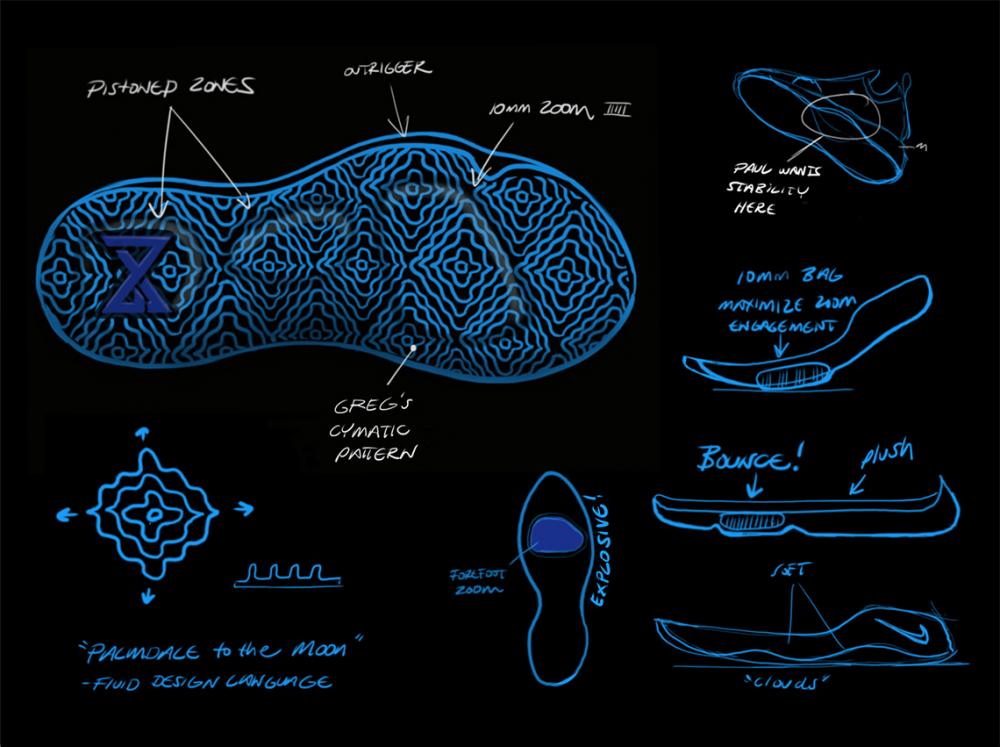 PISTONED ZONES
OUTRIGGER
10MM ZOOM
GREG'S
CYMATIC
PATTERN
PAUL WANTS
STABILITY
HERE
10MM BAG
MAXIMIZE ZOOM
ENGAGEMENT
BOUNCE!
plush
SOFT
"CLOUDS"
FOREFOOT
ZOOM
EXPLOSIVE!
"PALMDALE to the MOON"
-FLUID DESIGN LANGUAGE